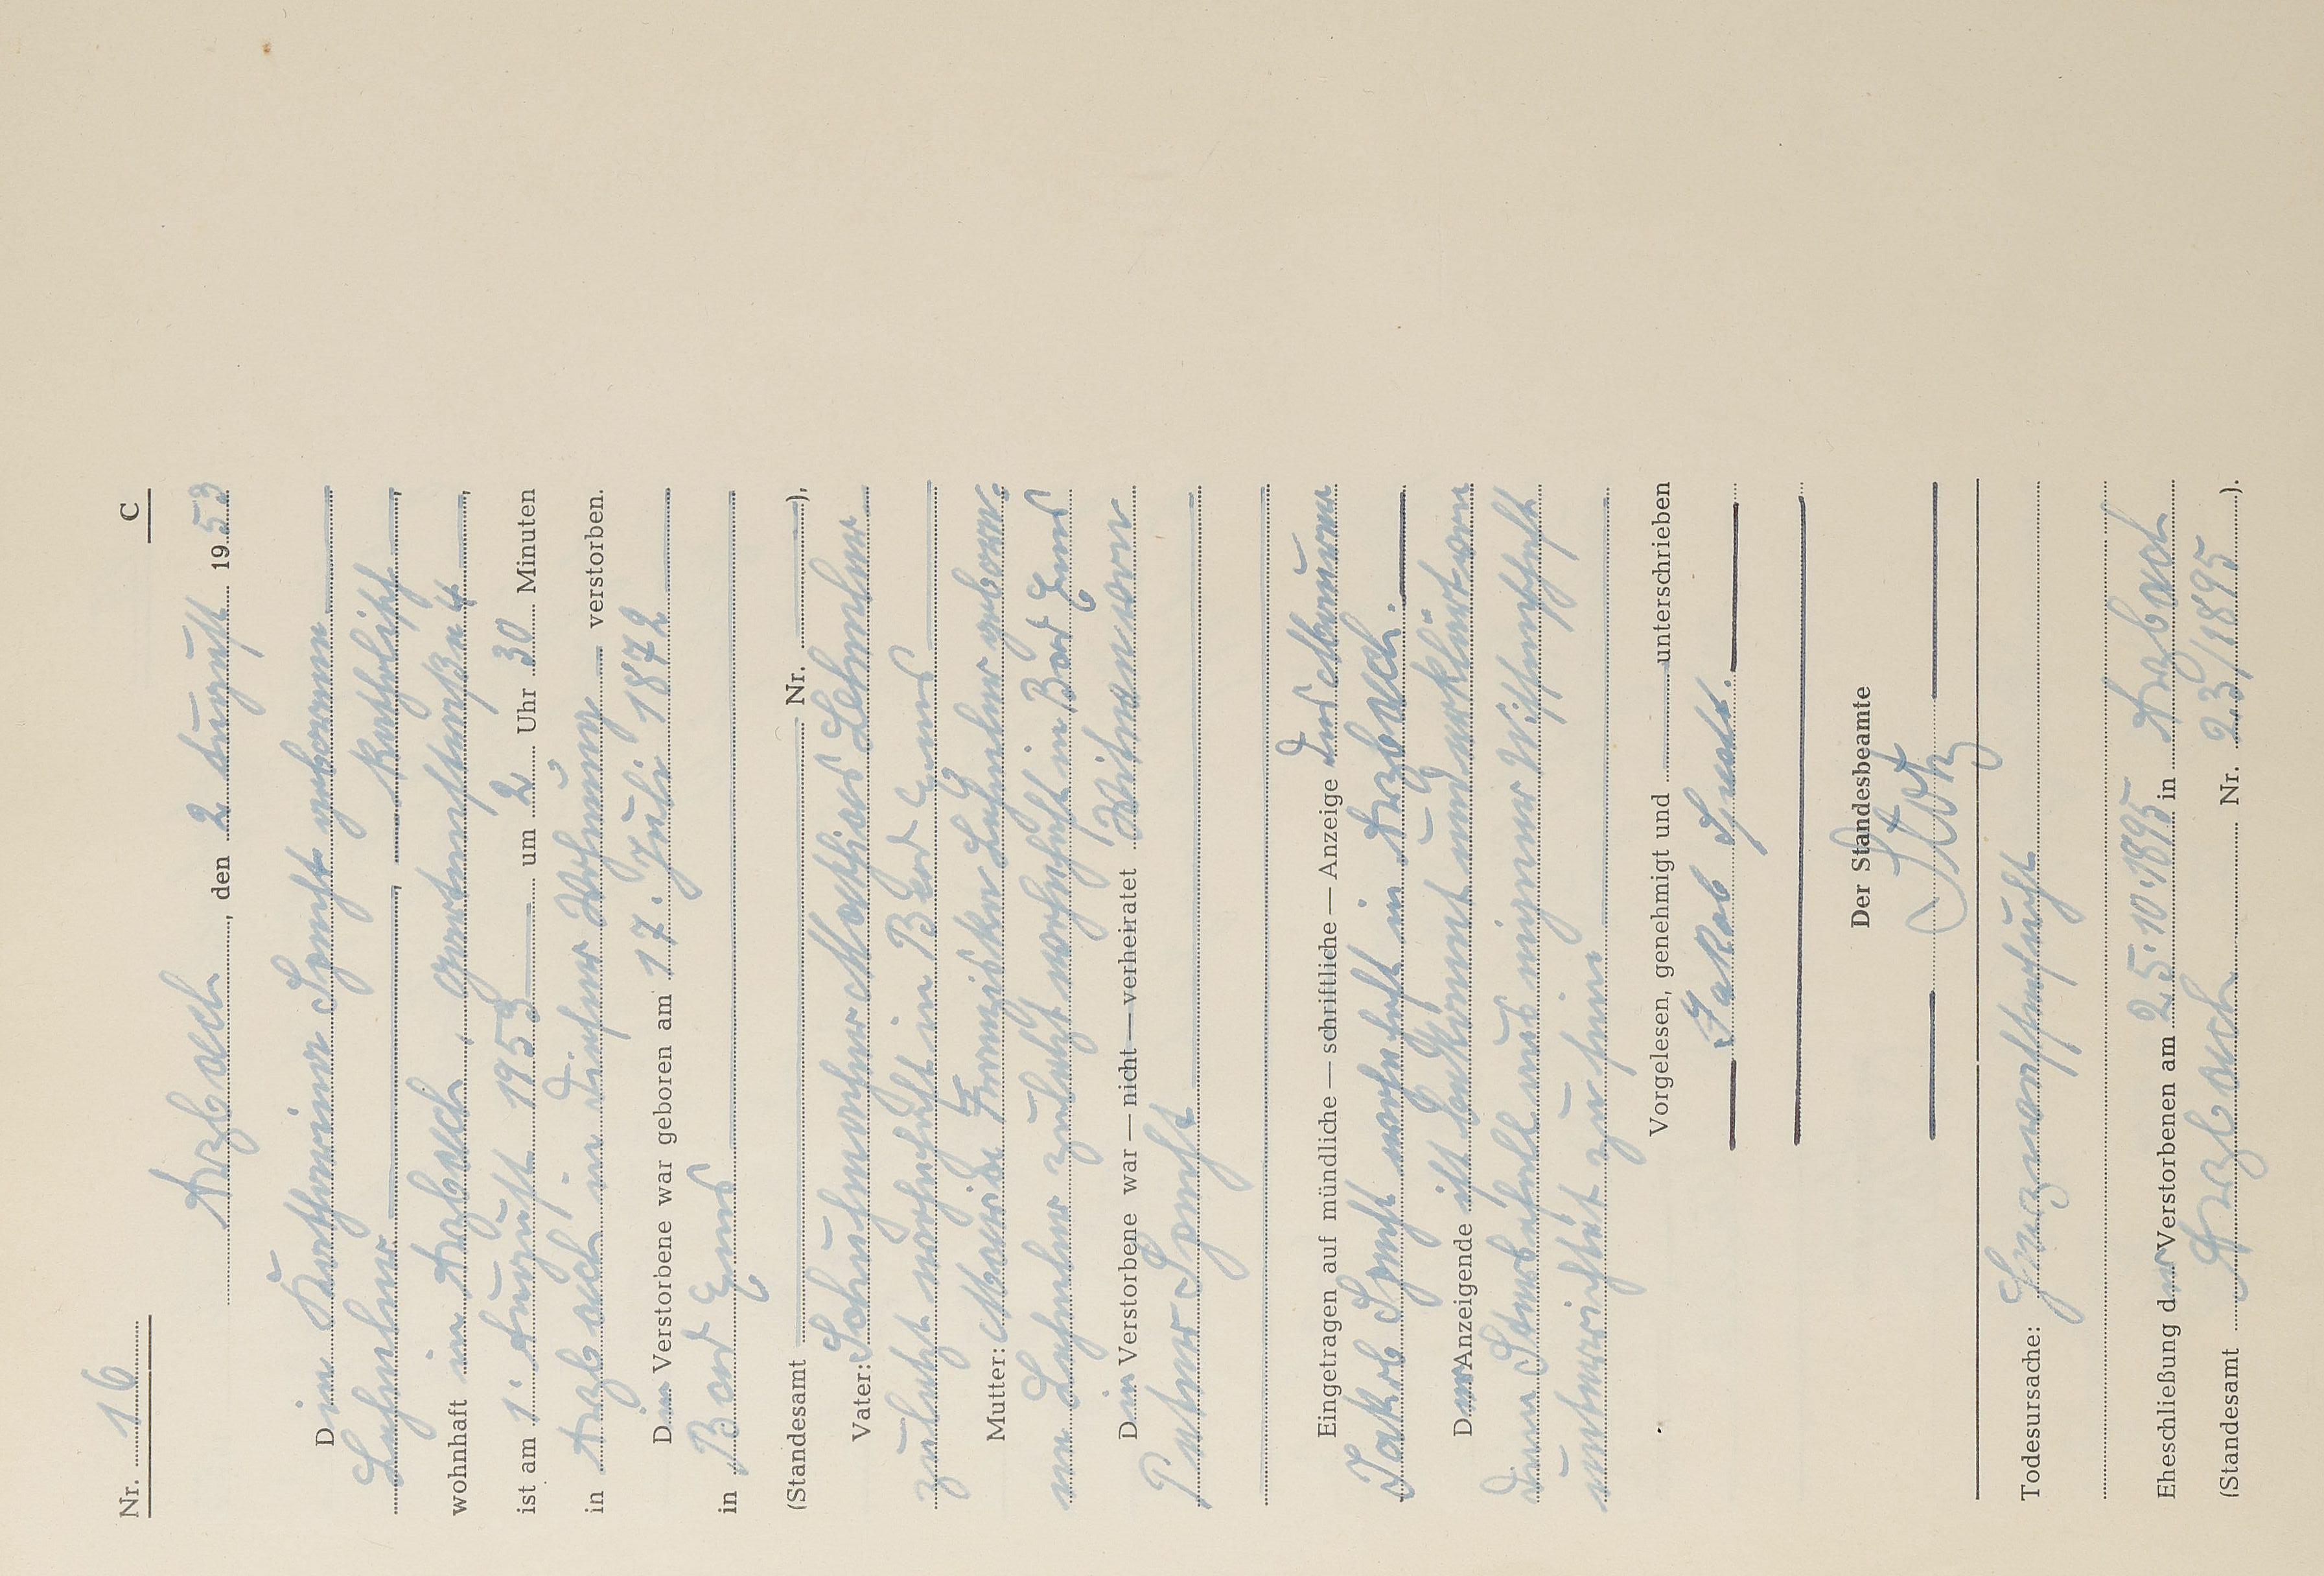 Nr. 16 C
Arzbach, den 2 August 1953
Die Katharina Specht geborene
Lehmler, katholisch,
wohnhaft in Arzbach, Gartenstraße 4,
ist am 1. August 1953 um 2 Uhr 30 Minuten
in Arzbach in dieser Wohnung verstorben.
Die Verstorbene war geboren am 17. Juli 1872
in Bad Ems
(Standesamt Nr. ),
Vater: Schuhmacher Mathias Lehmler
zuletzt wohnhaft in Bad Ems
Mutter: Maria Franziska Lehmler gebore-
ne Lehmler zuletzt wohnhaft in Bad Ems
Die Verstorbene war — nicht — verheiratet Witwe von
Peter Specht
Eingetragen auf mündliche — schriftliche — Anzeige des
Jakob Specht wohnhaft in Arzbach.
Der Anzeigende ist bekannt und erklärt von
dem Sterbefall aus eigener Wissenschaft
unterrichtet zu sein
Vorgelesen, genehmigt und unterschrieben
Jakob Specht.
Der Standesbeamte
Stotz
Todesursache: Herzwassersucht
Eheschließung der Verstorbenen am 25.10.1895 in Arzbach
(Standesamt Arzbach Nr. 23/1895).